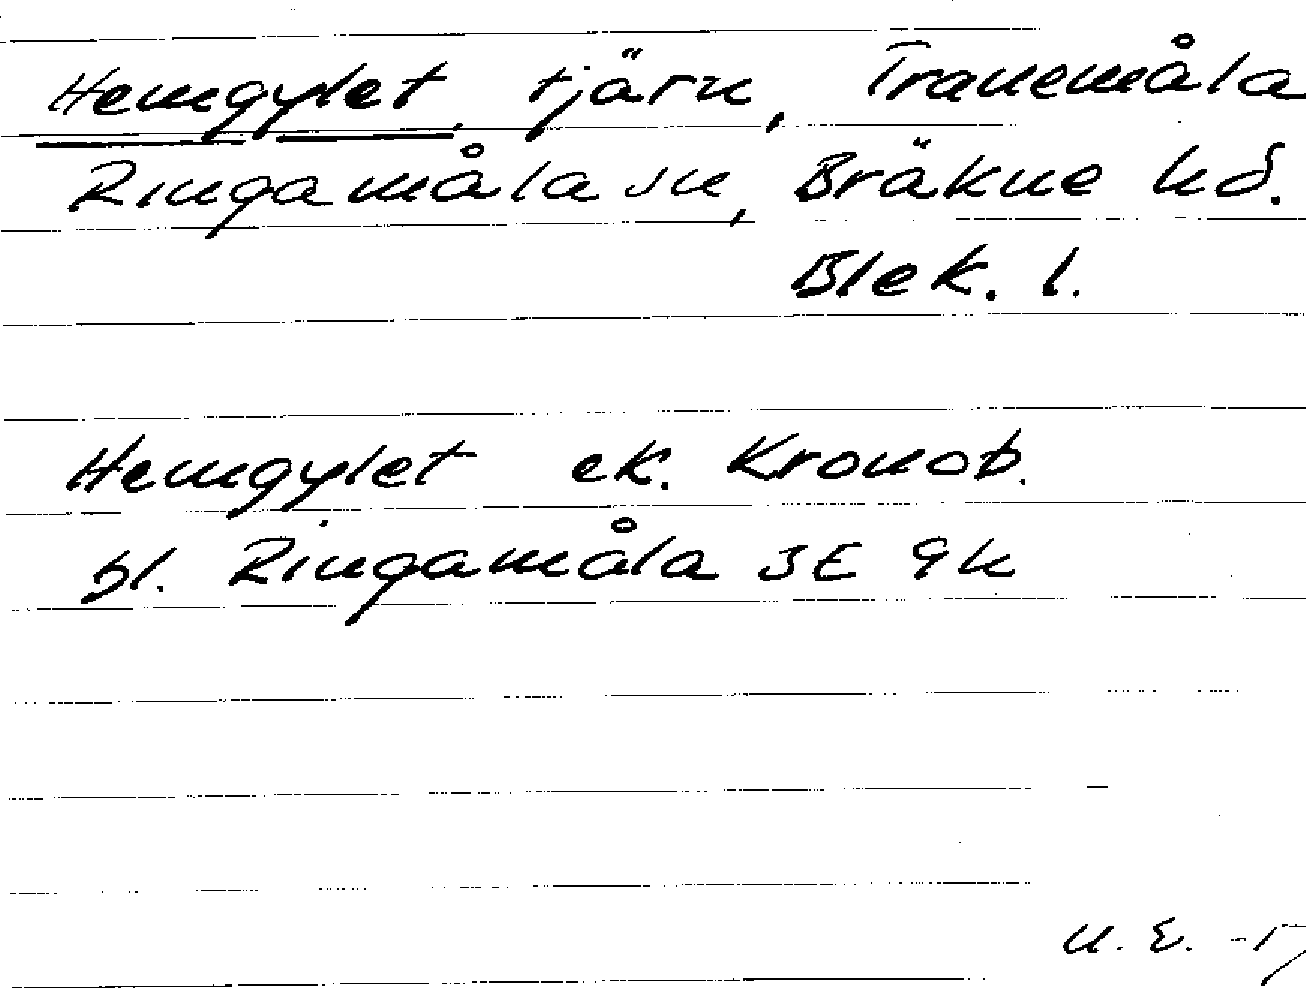 Hemgylet, tjärn, Tranemåla
Ringamåla sn, Bräkne hd.
Blek. l.
Hemgylet ek. Kronob.
bl. Ringamåla 3E 9h